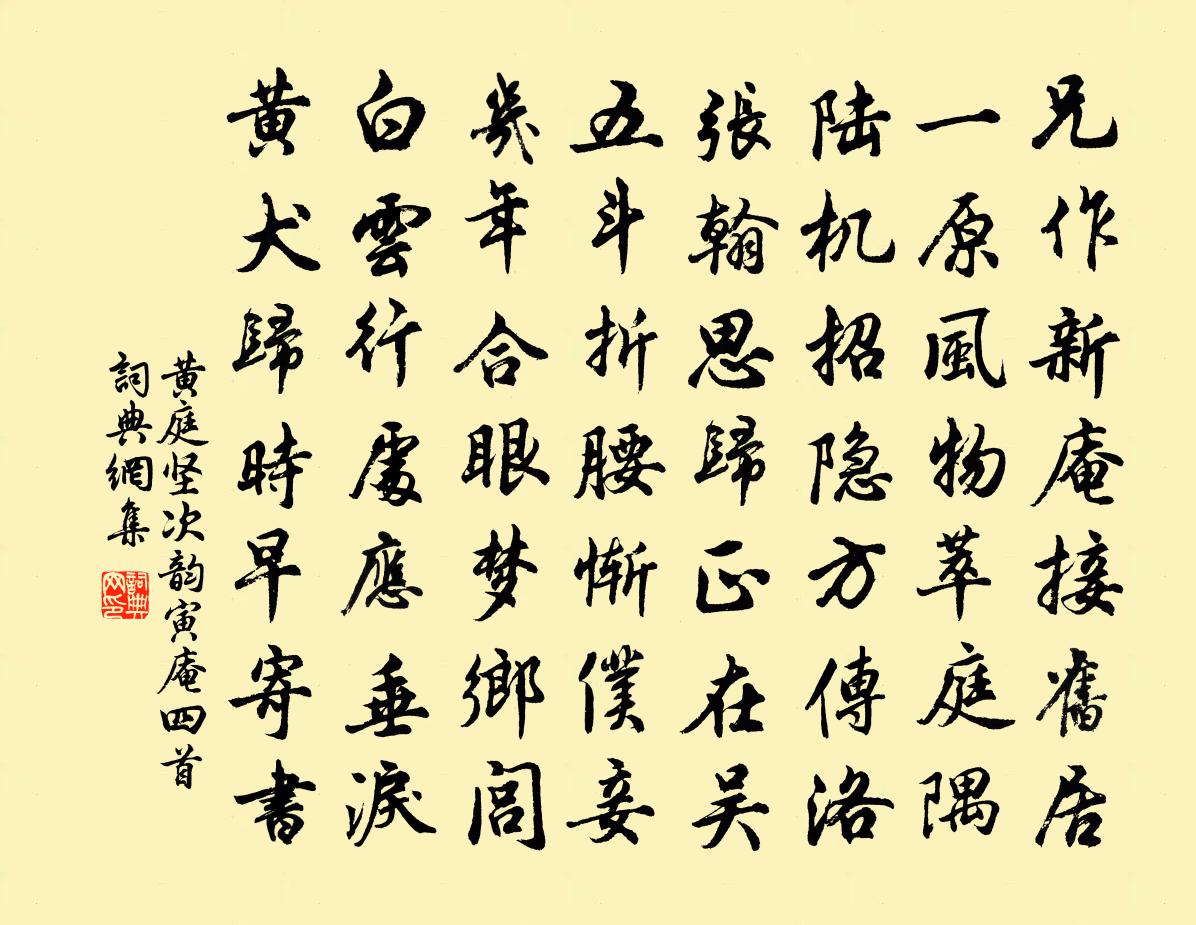 兄作新庵接舊居
一原風物萃庭隅
陆机招隐方傳洛
張翰思歸正在吴
五斗折腰慚僕妾
幾年合眼梦鄉閭
白雲行處應垂淚
黄犬歸時早寄書
黄庭坚次韵寅庵四首
詞典網集
詞典网印